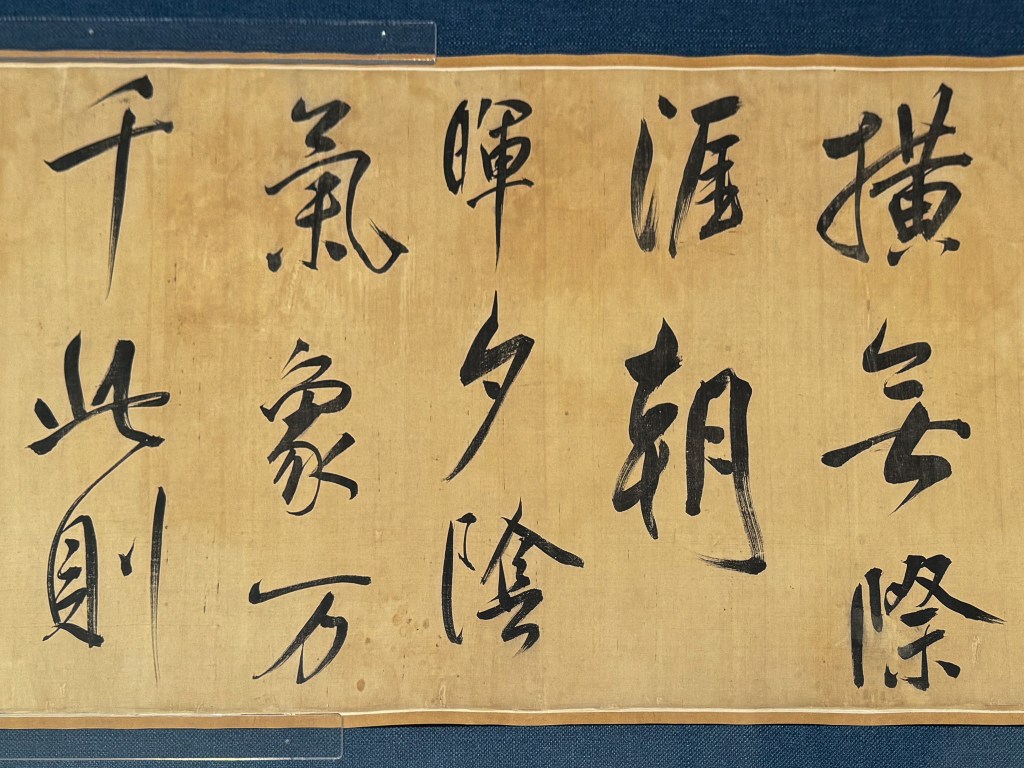 横無際
涯朝
暉夕陰
氣象万
千此則